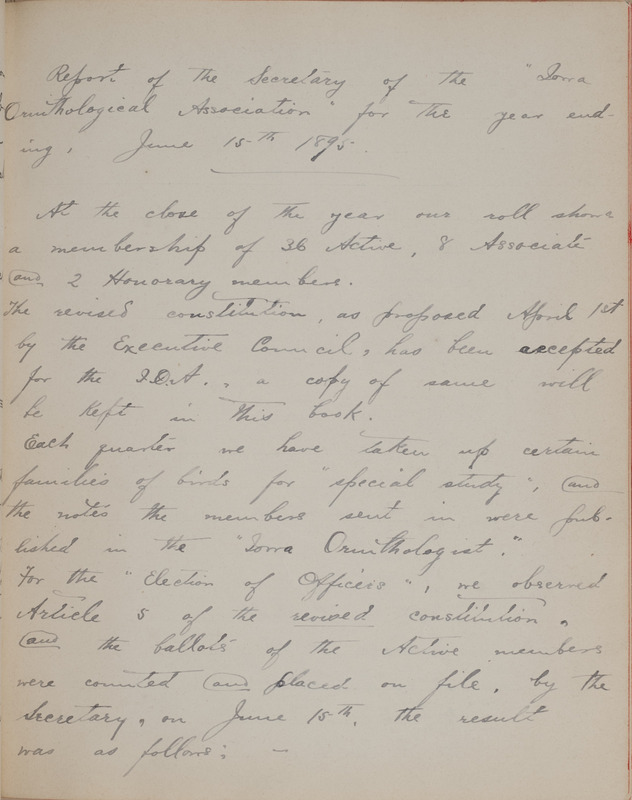 Report of the Secretary of the "Iowa
Ornithological Association" for the year end-
ing, June 15th 1895.
At the close of the year our roll shows
a membership of 36 Active, 8 Associate
and 2 Honorary members.
The revised constitution, as proposed April 1st
by the Executive Council, has been accepted
for the I.O.A., a copy of same will
be kept in this book.
Each quarter we have taken up certain
families of birds for "special study", and
the notes the members sent in were pub-
lished in the "Iowa Ornithologist."
For the "Election of Officers", we observed
Article 5 of the revised constitution,
and the ballots of the Active members
were counted and placed on file, by the
Secretary, on June 15th, the result
was as follows: —